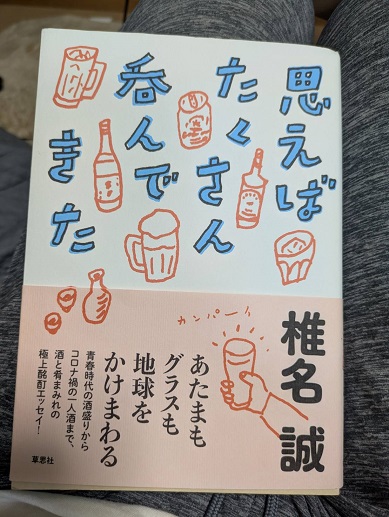 思えば
たくさん
呑んで
きた
椎名 誠
カンパーイ
あたまも
グラスも
地球を
かけまわる
青春時代の酒盛りから
コロナ禍の一人酒まで、
酒と肴まみれの
極上酩酊エッセイ!
草思社